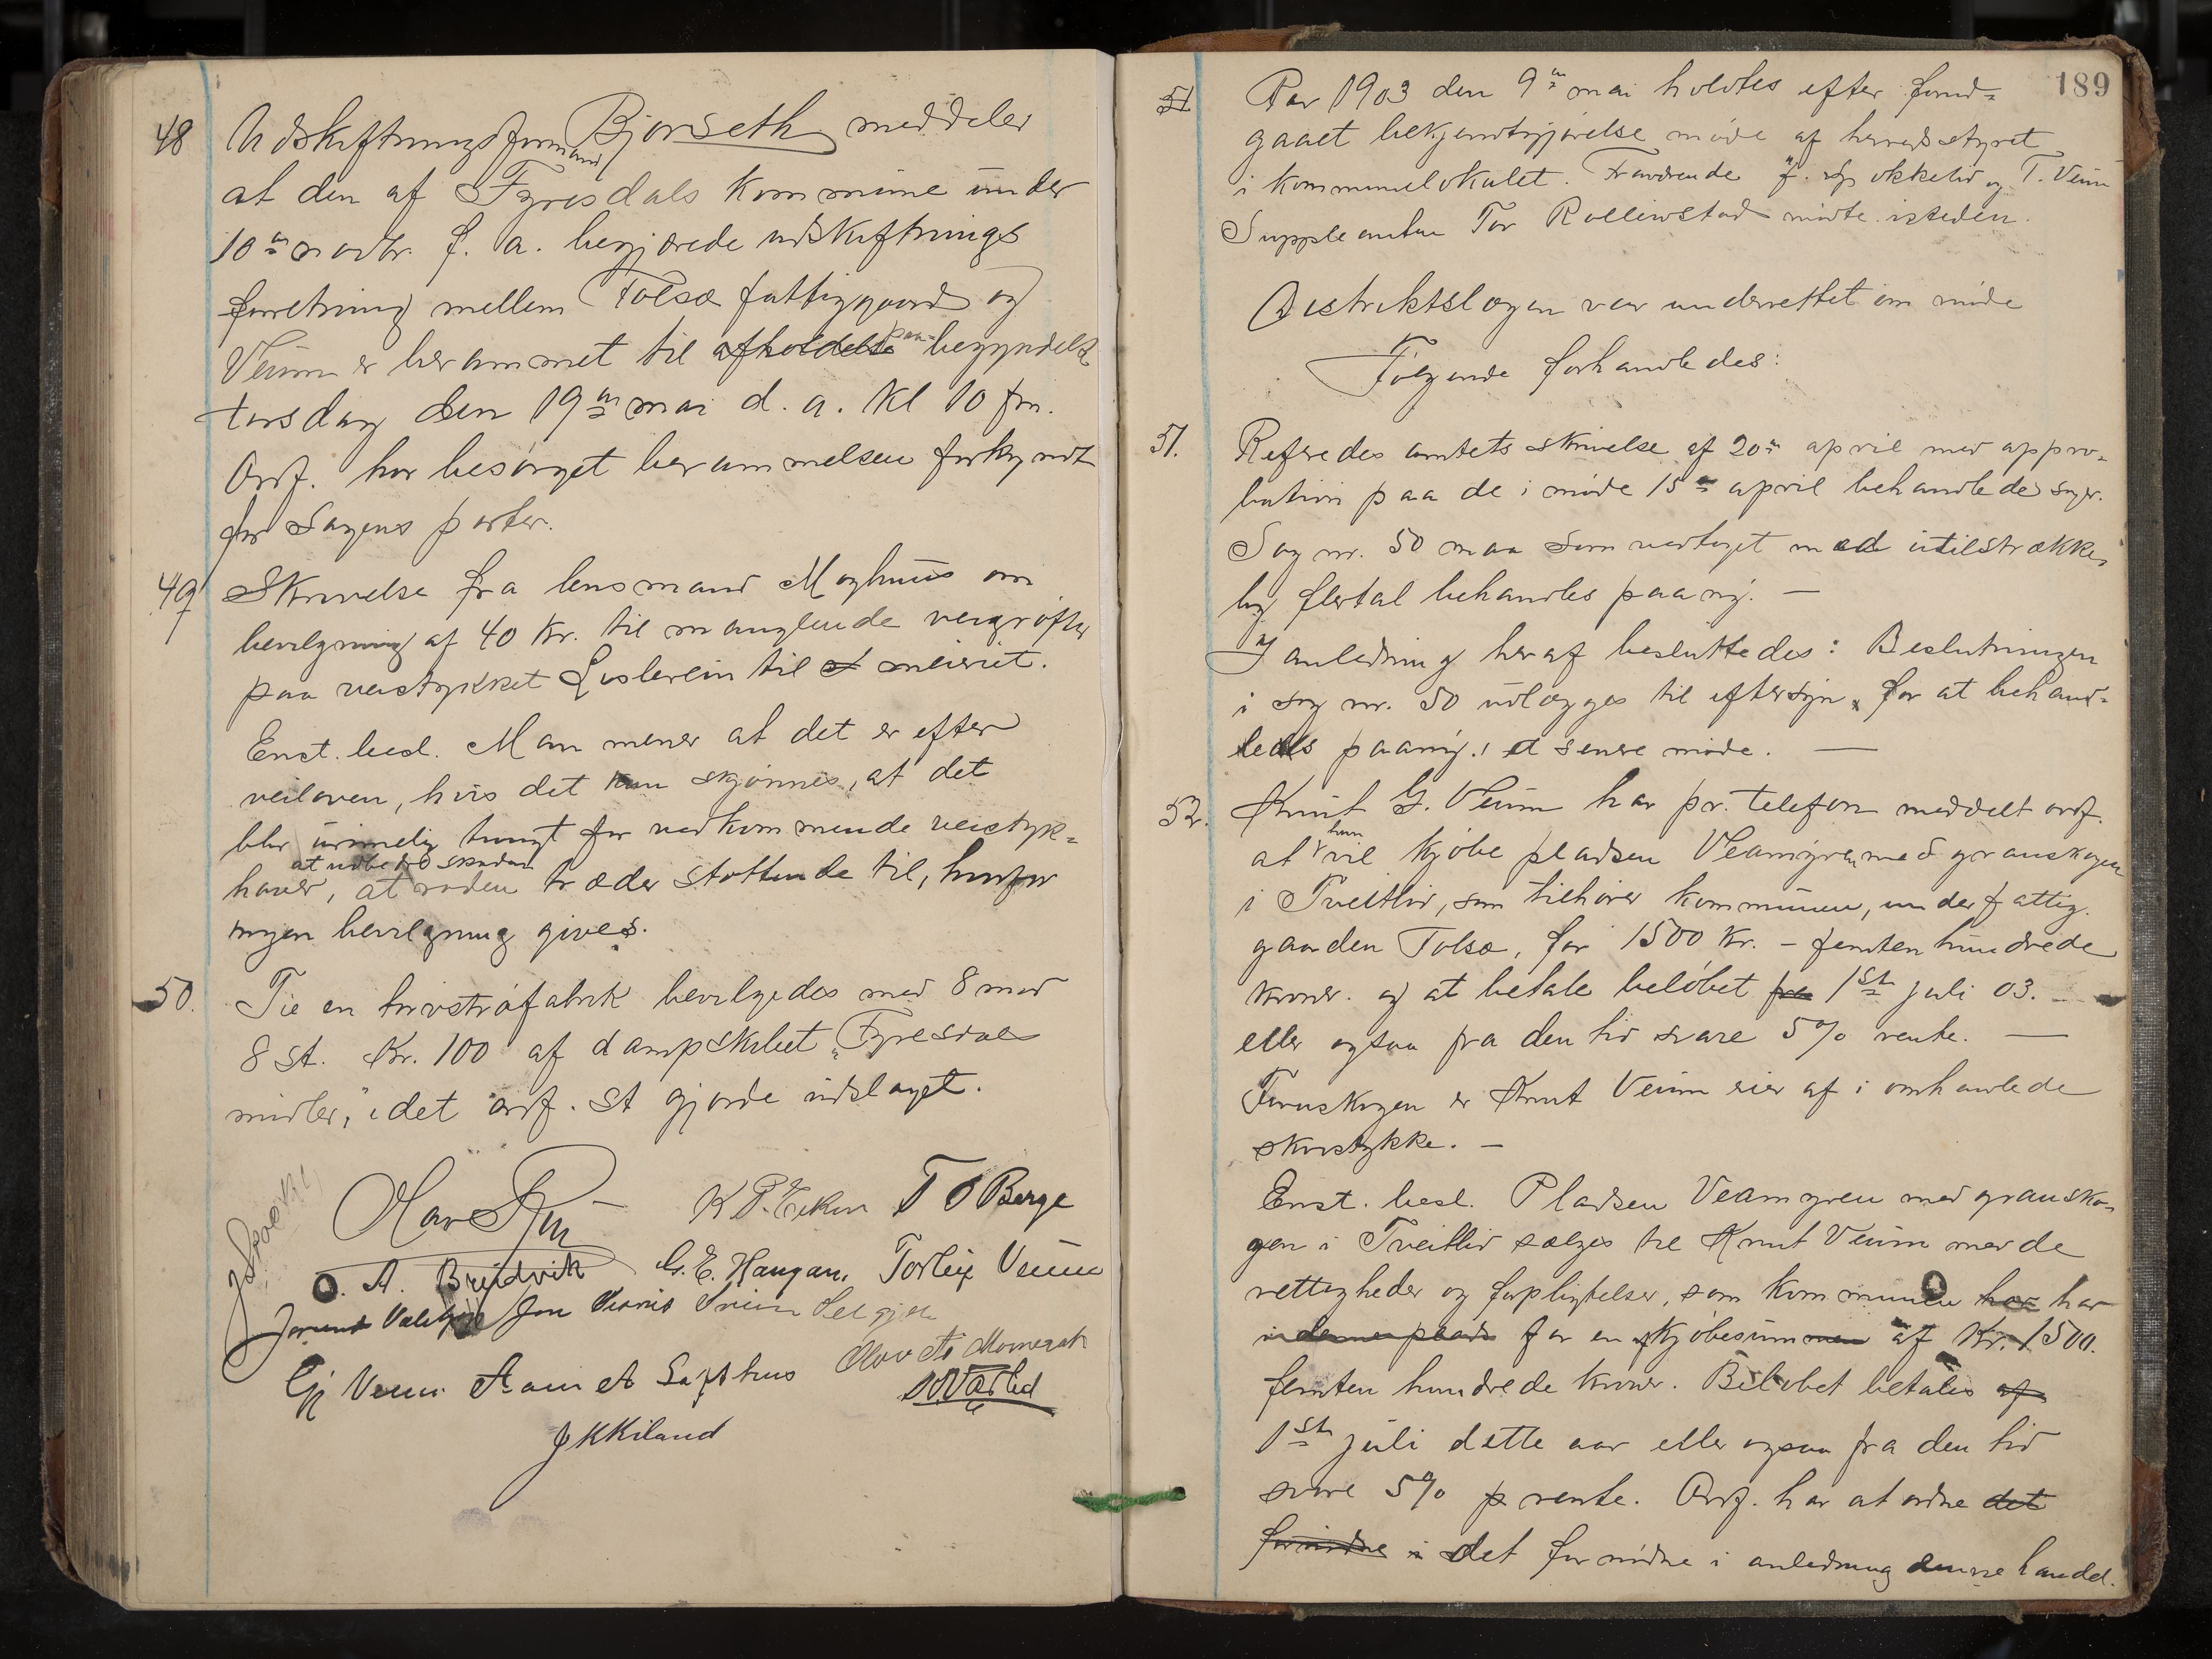 48 Udskiftningsformand Bjorseth meddeler
at den af Fyresdals kommune under
10de novbr. f. a. begjærede udskiftnings
forretning mellem Tolsæ fattiggaard og
Veum er berammet til afholdelse paa-begyndelse
torsdag den 19de mai d. a. kl 10 fm.
Ordf. har besørget berammelsen forkyndt
for Sagens parter.
49 Skrivelse fra lensmand Moghus om
bevilgning af 40 kr. til manglende veigrøfter
paa veistykket Lislevein til meieriet.
Enst. besl. Man mener at det er efter
veiloven, hvis det kan skjønnes, at det
blir urimelig tungt for vedkommende veistyk-
at udbedre skaden
haver, at roden træder støttende til, hvorfor
ingen bevilgning gives.
50. Til en torvstrøfabrik bevilgedes med 8 mod
8 st. Kr. 100 af dampskibet "Fyresdal
midler," idet ordf. st gjorde udslaget.
K P. T O Berge
O. A. Breidvik G. E. Haugan. Torleif Veum
Jon
Gj Veum Aanet
J K Kiland
189
51 Aar 1903 den 9de mai holdtes efter forud-
gaaet bekjendtgjørelse møde af herredsstyret
i kommunelokalet. Fraværende og T. Veum
Suppleanten Tor Rolleivstad mødte isteden.
Distriktslægen var underrettet om møde
Følgende forhandledes:
51. Refredes amtets skrivelse af 20de april med appro-
bation paa de i møde 15de april behandlede sager.
Sag nr. 50 maa som vedtaget med utilstrække-
lig flertal behandles paany. —
I anledning heraf besluttedes: Beslutningen
i sag nr. 50 udlægges til eftersyn for at behand-
les paany i et senere møde. —
52. Knut G. Veum har pr. telefon meddelt ordf.
at han vil kjøbe pladsen Veamyren med granskogen
i Tveitlid, som tilhører kommunen, under fattig.
gaarden Tolsæ, for 1500 kr. – femten hundrede
kroner. og at betale beløbet fra 1ste juli 03. —
eller ogsaa fra den tid svare 5% rente. —
Furuskogen er Knut Veum eier af i omhandlede
skovstykke. —
Enst. besl. Pladsen Veamyren med gransko-
gen i Tveitlid sælges til Knut Veum med de
rettigheder og forpligtelser, som kommunen har har
i denne plads for en kjøbesummen af Kr. 1500.
femten hundrede kroner. Beløbet betales af
1ste juli dette aar eller ogsaa fra den tid
svare 5% p rente. Ordf. har at ordne det
fornødne i det fornødne i anledning denne handel.